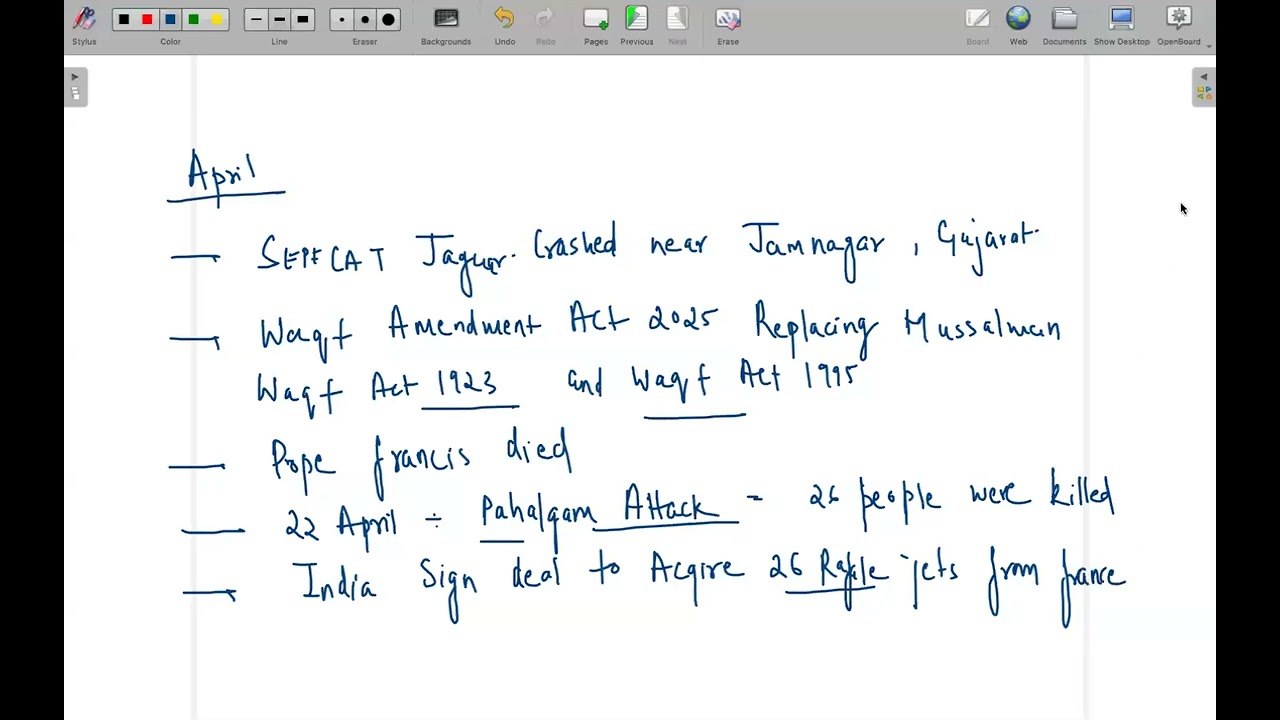 Stylus
Color
Line
Eraser
Backgrounds
Undo
Redo
Pages
Previous
Next
Erase
Board
Web
Documents
Show Desktop
OpenBoard
April
— SEPECAT Jaguar. Crashed near Jamnagar, Gujarat.
— Waqf Amendment Act 2025 Replacing Mussalman
Waqf Act 1923 and Waqf Act 1995
— Pope francis died
— 22 April ÷ Pahalgam Attack - 26 people were killed
— India Sign deal to Acqire 26 Rafle jets from france